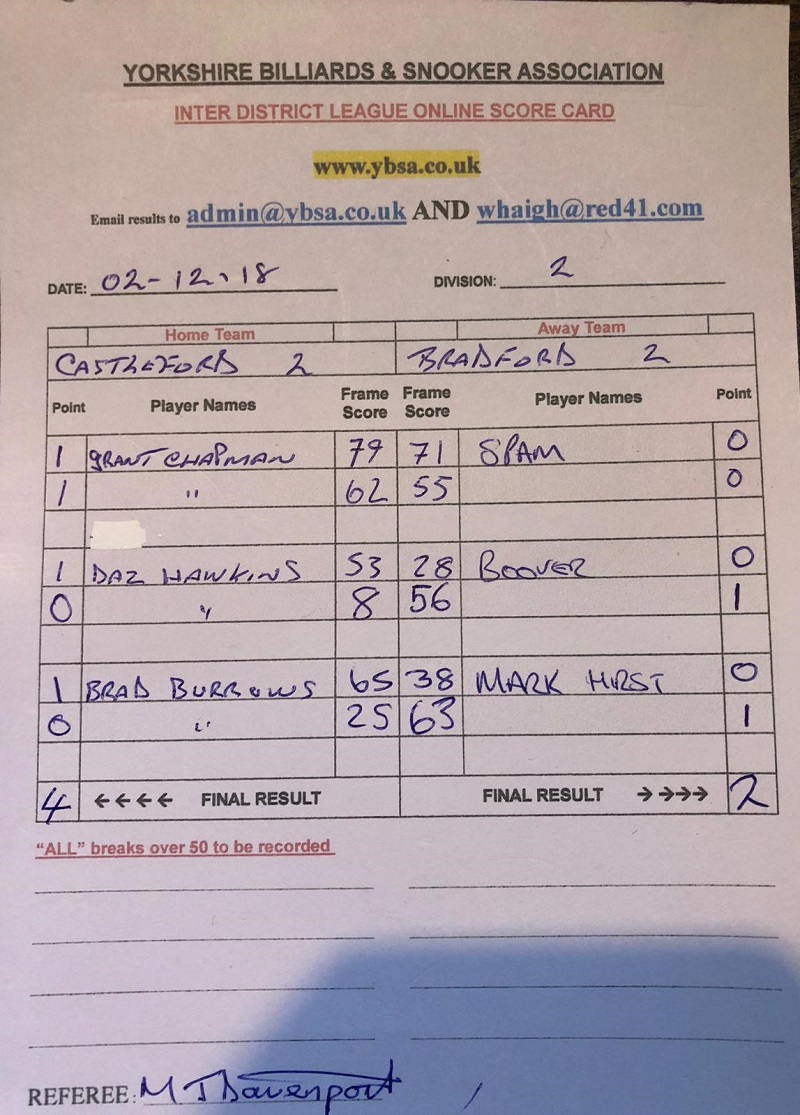 YORKSHIRE BILLIARDS & SNOOKER ASSOCIATION
INTER DISTRICT LEAGUE ONLINE SCORE CARD
www.ybsa.co.uk
Email results to admin@ybsa.co.uk AND whaigh@red41.com
DATE: 02-12-18 DIVISION: 2
Home Team Away Team
CASTLEFORD 2 BRADFORD 2
Point Player Names Frame Score Frame Score Player Names Point
1 GRANT CHAPMAN 79 71 SPAM 0
1 " 62 55 0
1 DAZ HAWKINS 53 28 BOOVER 0
0 " 8 56 1
1 BRAD BURROWS 65 38 MARK HIRST 0
0 " 25 63 1
4 ←←←← FINAL RESULT FINAL RESULT →→→→ 2
"ALL" breaks over 50 to be recorded
REFEREE: M J Davenport